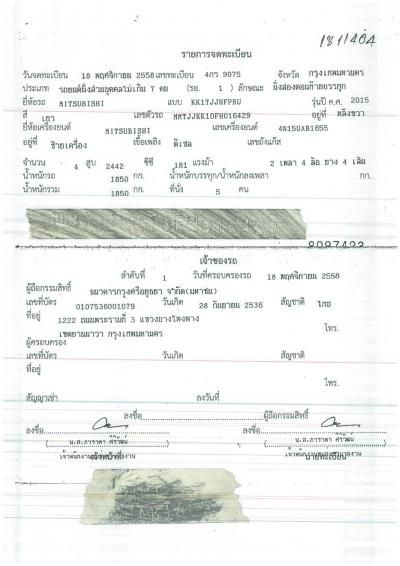 181/404
รายการจดทะเบียน
วันจดทะเบียน 18 พฤศจิกายน 2558 เลขทะเบียน 4กร 9075 จังหวัด กรุงเทพมหานคร
ประเภท รถยนต์นั่งส่วนบุคคลไม่เกิน 7 คน (รย. 1) ลักษณะ นั่งสองตอนท้ายบรรทุก
ยี่ห้อรถ MITSUBISHI แบบ KK1TJJHFPRU รุ่นปี ค.ศ. 2015
สี เทา เลขตัวรถ MMTJJKK10FH016429 อยู่ที่ หลังขวา
ยี่ห้อเครื่องยนต์ MITSUBISHI เลขเครื่องยนต์ 4N15UAB1655
อยู่ที่ ซ้ายเครื่อง เชื้อเพลิง ดีเซล เลขถังแก๊ส
จำนวน 4 สูบ 2442 ซีซี 181 แรงม้า 2 เพลา 4 ล้อ ยาง 4 เส้น
น้ำหนักรถ 1850 กก. น้ำหนักบรรทุก/น้ำหนักลงเพลา กก.
น้ำหนักรวม 1850 กก. ที่นั่ง 5 คน
8097423
เจ้าของรถ
ลำดับที่ 1 วันที่ครอบครองรถ 18 พฤศจิกายน 2558
ผู้ถือกรรมสิทธิ์ ธนาคารกรุงศรีอยุธยา จำกัด(มหาชน)
เลขที่บัตร 0107536001079 วันเกิด 28 กันยายน 2536 สัญชาติ ไทย
ที่อยู่ 1222 ถนนพระรามที่ 3 แขวงบางโพงพาง
เขตยานนาวา กรุงเทพมหานคร โทร.
ผู้ครอบครอง
เลขที่บัตร วันเกิด สัญชาติ
ที่อยู่
โทร.
สัญญาเช่า ลงวันที่
ลงชื่อ ผู้ถือกรรมสิทธิ์
ลงชื่อ ลงชื่อ
(น.ส.ภาราดา ศิริวัฒน์) (น.ส.ภาราดา ศิริวัฒน์)
นายทะเบียน